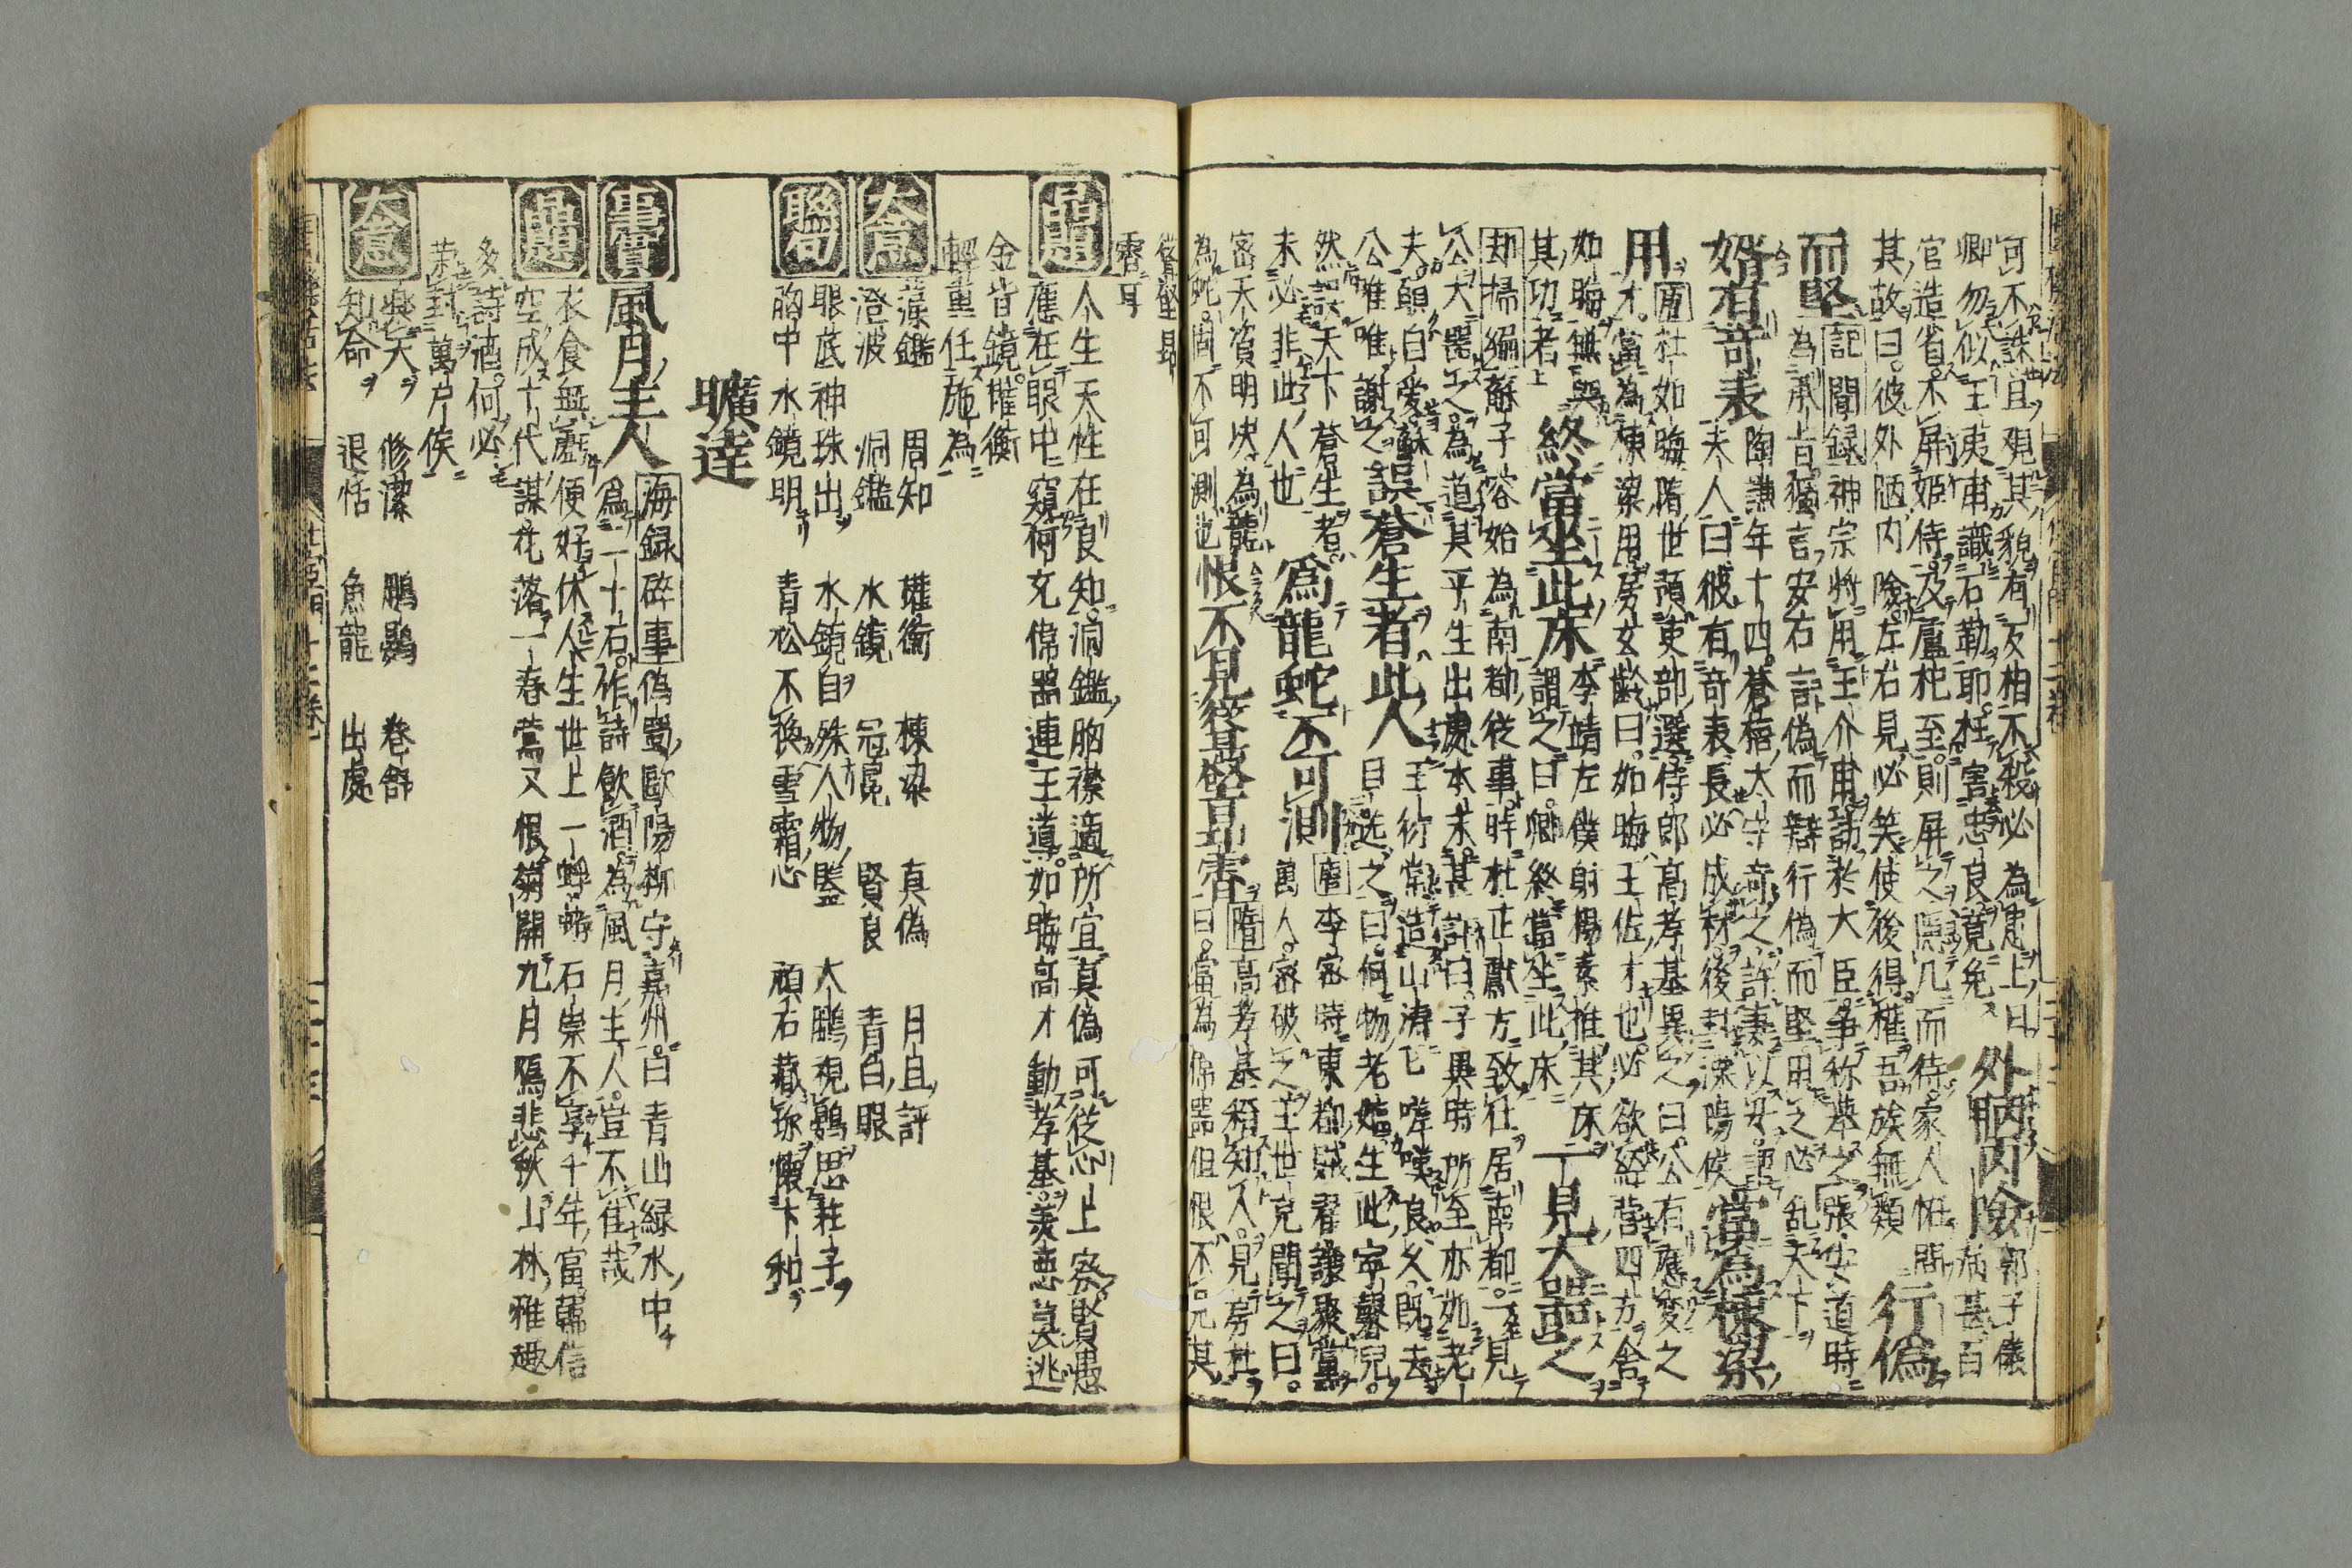 可不誅且觀其貌有反相不殺必為患上曰外䏶内險郭子儀
卿勿似王夷甫識石勒耶枉害忠良竟免病甚百
官造省不屏姬侍及盧杞至則屏之隠几而待家人怪問
其故曰彼外陋内險左右見必笑使後得權吾族無類行偽
而堅記聞録神宗將用王介甫訪於大臣爭称薦之張安道時
為承旨獨言安石言偽而辯行偽而堅用之必乱天下
婿有奇表陶謙年十四蒼梧太守奇之許妻以女
夫人曰彼有奇表長必成材後封溧陽侯當為棟梁
用唐杜如晦隋世預吏部選侍郎高孝基異之曰公有應變之
才當為棟梁用房玄齡曰如晦王佐才也必欲經營四方舍
如晦無與其功者終當坐此床李靖左僕射楊素推其床
謂之曰卿終當坐此床一見大器之
却掃編蘇子容始為南都從事時杜正獻方致仕居南都一見
公大器之為道其平生出處本末甚詳曰子異時所至亦如老
夫願自愛
公唯唯謝之誤蒼生者此人王衍常造山濤亡嗟嘆良久既去
目送之曰何物老媼生此寧馨兒
然誤天下蒼生者
未必非此人也為龍蛇不可測唐李密時東都賊翟讓聚黨
萬人密破之王世充聞之曰
密天資明決為龍恨不見聳壑昂霄隋高孝基稱知人見房杜
為蛇固不可測也曰當為偉器但恨不見其
聳壑昂
霄耳
品題
人生天性在良知洞鑑胸襟適所宜真偽可從心上察賢愚
應在眼中窺何尤偉器連王導如晦高才動孝基美惡莫逃
金皆鏡權衡
輕重任施為
大意
藻鑑 周知 權衡 棟梁 真偽 月旦評
澄波 洞鑑 水鏡 冠冕 賢良 青白眼
聯句
眼底神珠出 水鏡自殊人物鑑 大鵬視鷃思莊子
胸中水鏡明 青松不換雪霜心 頑石藏珍懷卞和
曠達
事實
風月主人海録碎事偽蜀歐陽彬守嘉州曰青山緑水中
為二千石作詩飲酒為風月主人豈不佳哉
品題
衣食無虧便好休人生世上一蜉蝣石崇不享千年富韓信
空成十代謀花落一春鶯又恨菊開九月鴈悲秋山林雅趣
多詩酒何必
榮封萬户侯
大意
樂天 修潔 鵬鷃 卷舒
知命 退恬 魚龍 出處